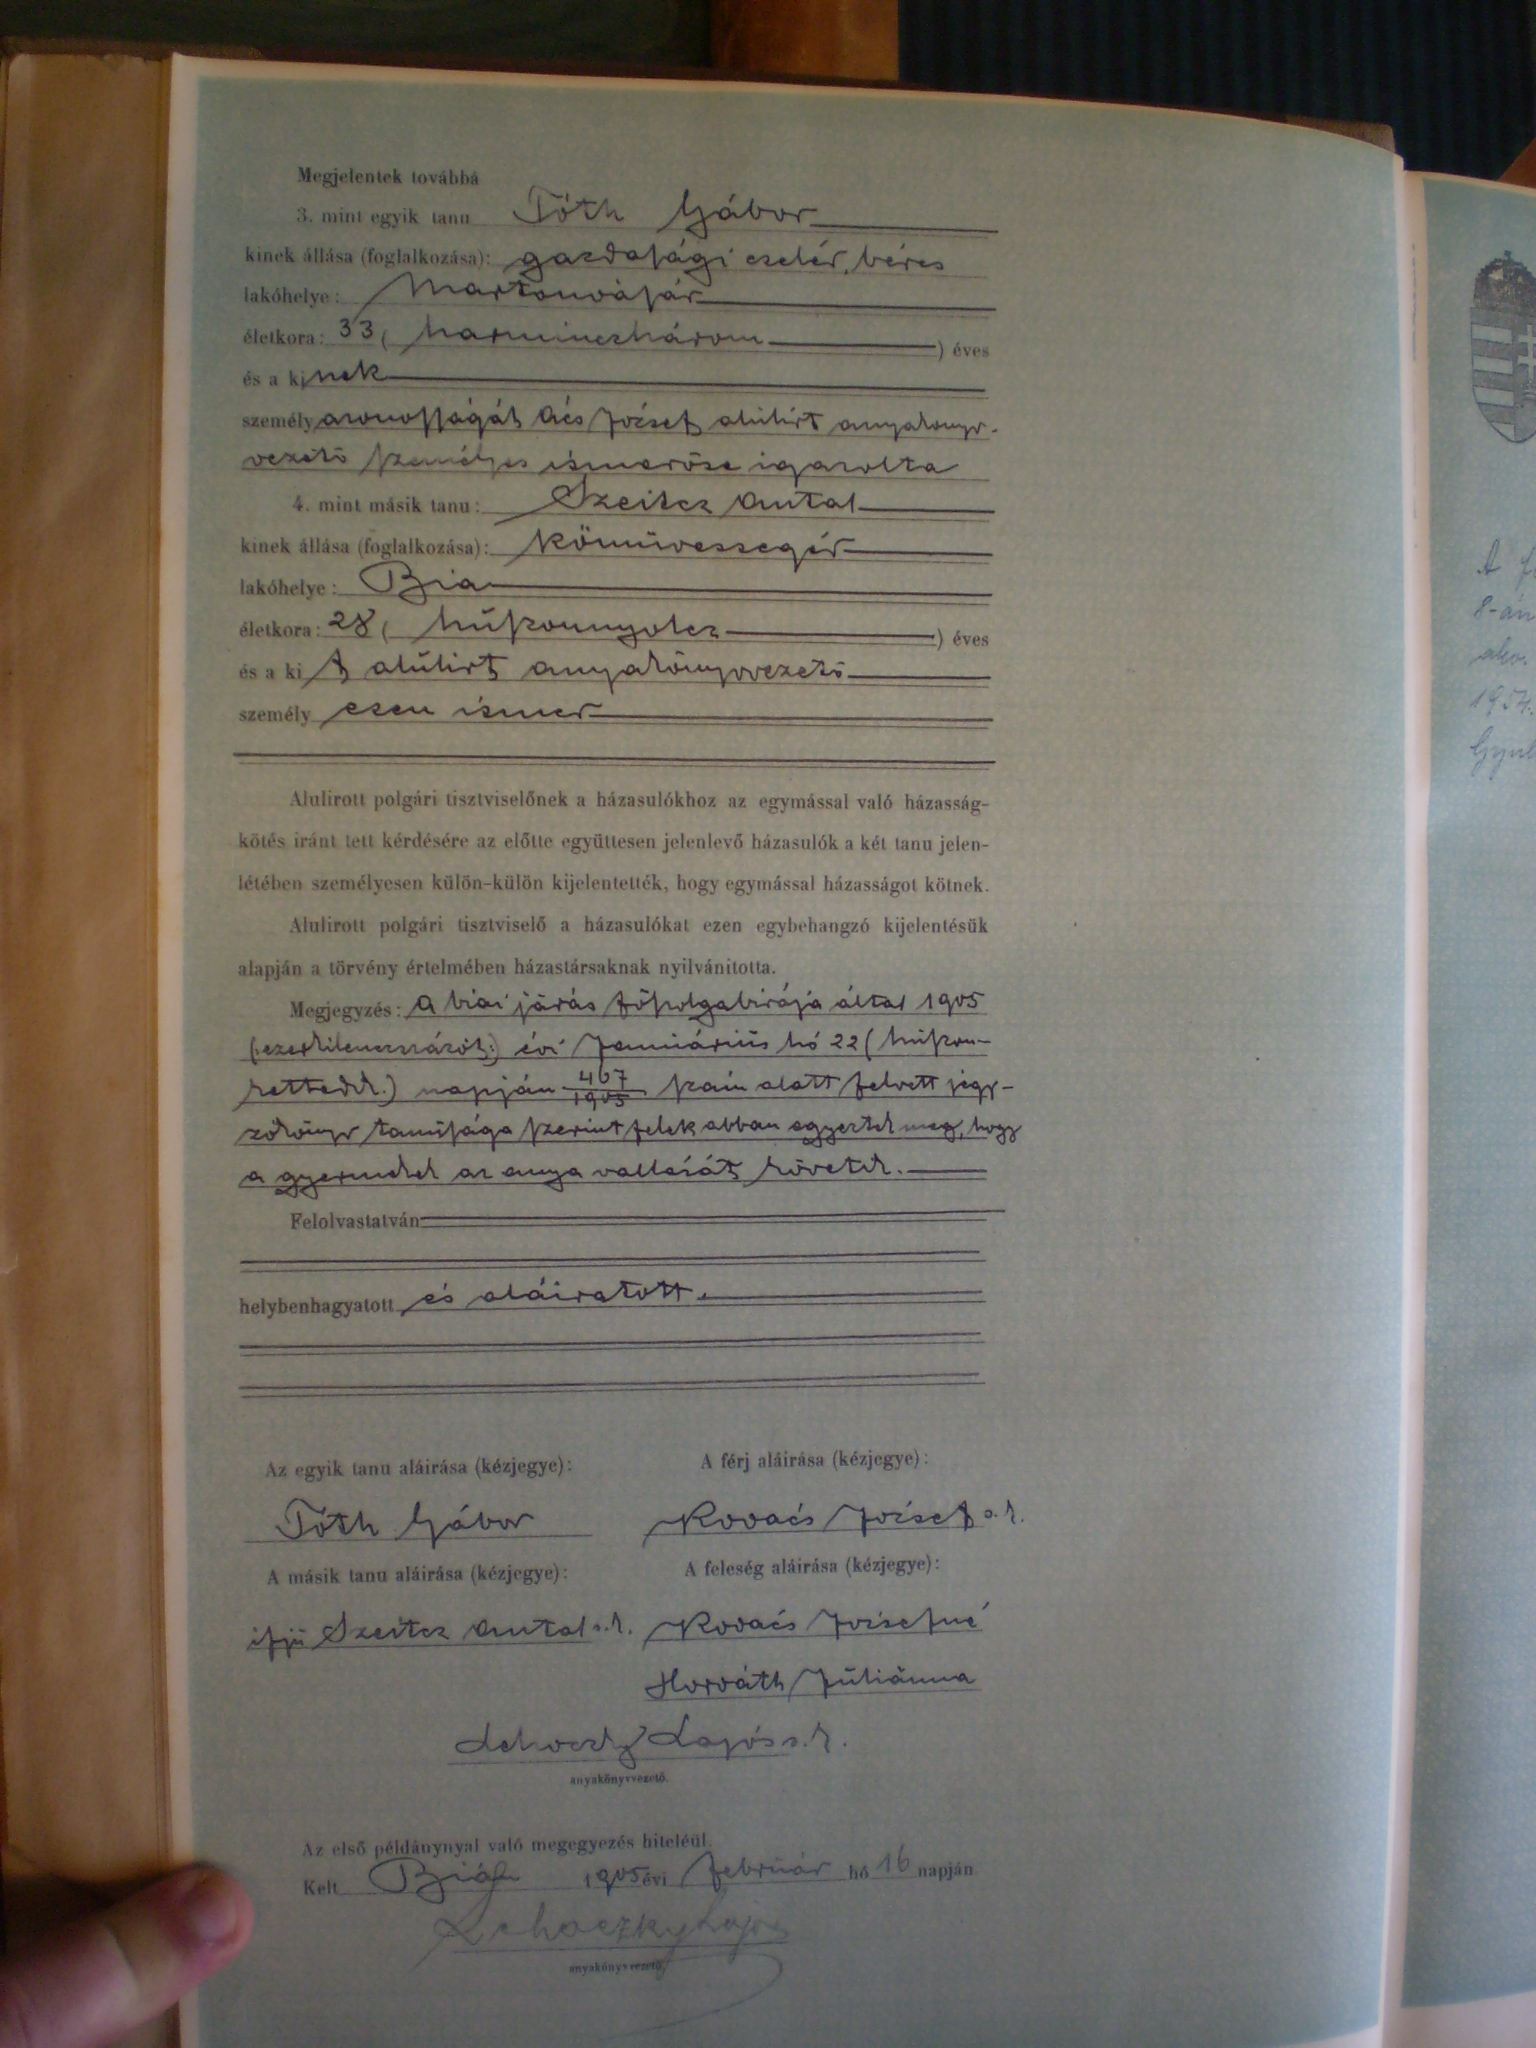 Megjelentek továbbá
3. mint egyik tanu Tóth Gábor
kinek állása (foglalkozása): gazdasági cseléd, béres
lakóhelye: Martonvásár
életkora: 33 (harminczhárom) éves
és a kinek
személyazonosságát Ács József alúlirt anyakönyv-
vezető személyes ismerőse igazolta
4. mint másik tanu: Szeitcz Antal
kinek állása (foglalkozása): kőmüvessegéd
lakóhelye: Bia
életkora: 28 (húszonnyolcz) éves
és a kit alúlirt anyakönyvvezető
személyesen ismer
Alulirott polgári tisztviselőnek a házasulókhoz az egymással való házasság-
kötés iránt tett kérdésére az előtte együttesen jelenlevő házasulók a két tanu jelen-
létében személyesen külön-külön kijelentették, hogy egymással házasságot kötnek.
Alulirott polgári tisztviselő a házasulókat ezen egybehangzó kijelentésük
alapján a törvény értelmében házastársaknak nyilvánitotta.
Megjegyzés: A biai járás főszolgabirája által 1905
(:ezerkilenczszázöt:) évi Januáriús hó 22 (húszon-
kettedik.) napján 467/1905 szám alatt felvett jegy-
zőkönyv tanúsága szerint felek abban egyeztek meg, hogy
a gyermekek az anya vallását követik.
Felolvastatván
helybenhagyatott és aláiratott.
Az egyik tanu aláirása (kézjegye): A férj aláirása (kézjegye):
Tóth Gábor Kovács József s. k.
A másik tanu aláirása (kézjegye): A feleség aláirása (kézjegye):
ifjú Szeitcz Antal s. k. Kovács Józsefné
Horváth Júliánna
Lehoczky Lajos s. k.
anyakönyvvezető.
Az első példánynyal való megegyezés hiteléül.
Kelt Bián 1905 évi február hó 16 napján
Lehoczky Lajos
anyakönyvvezető.
A
8-án
1954.